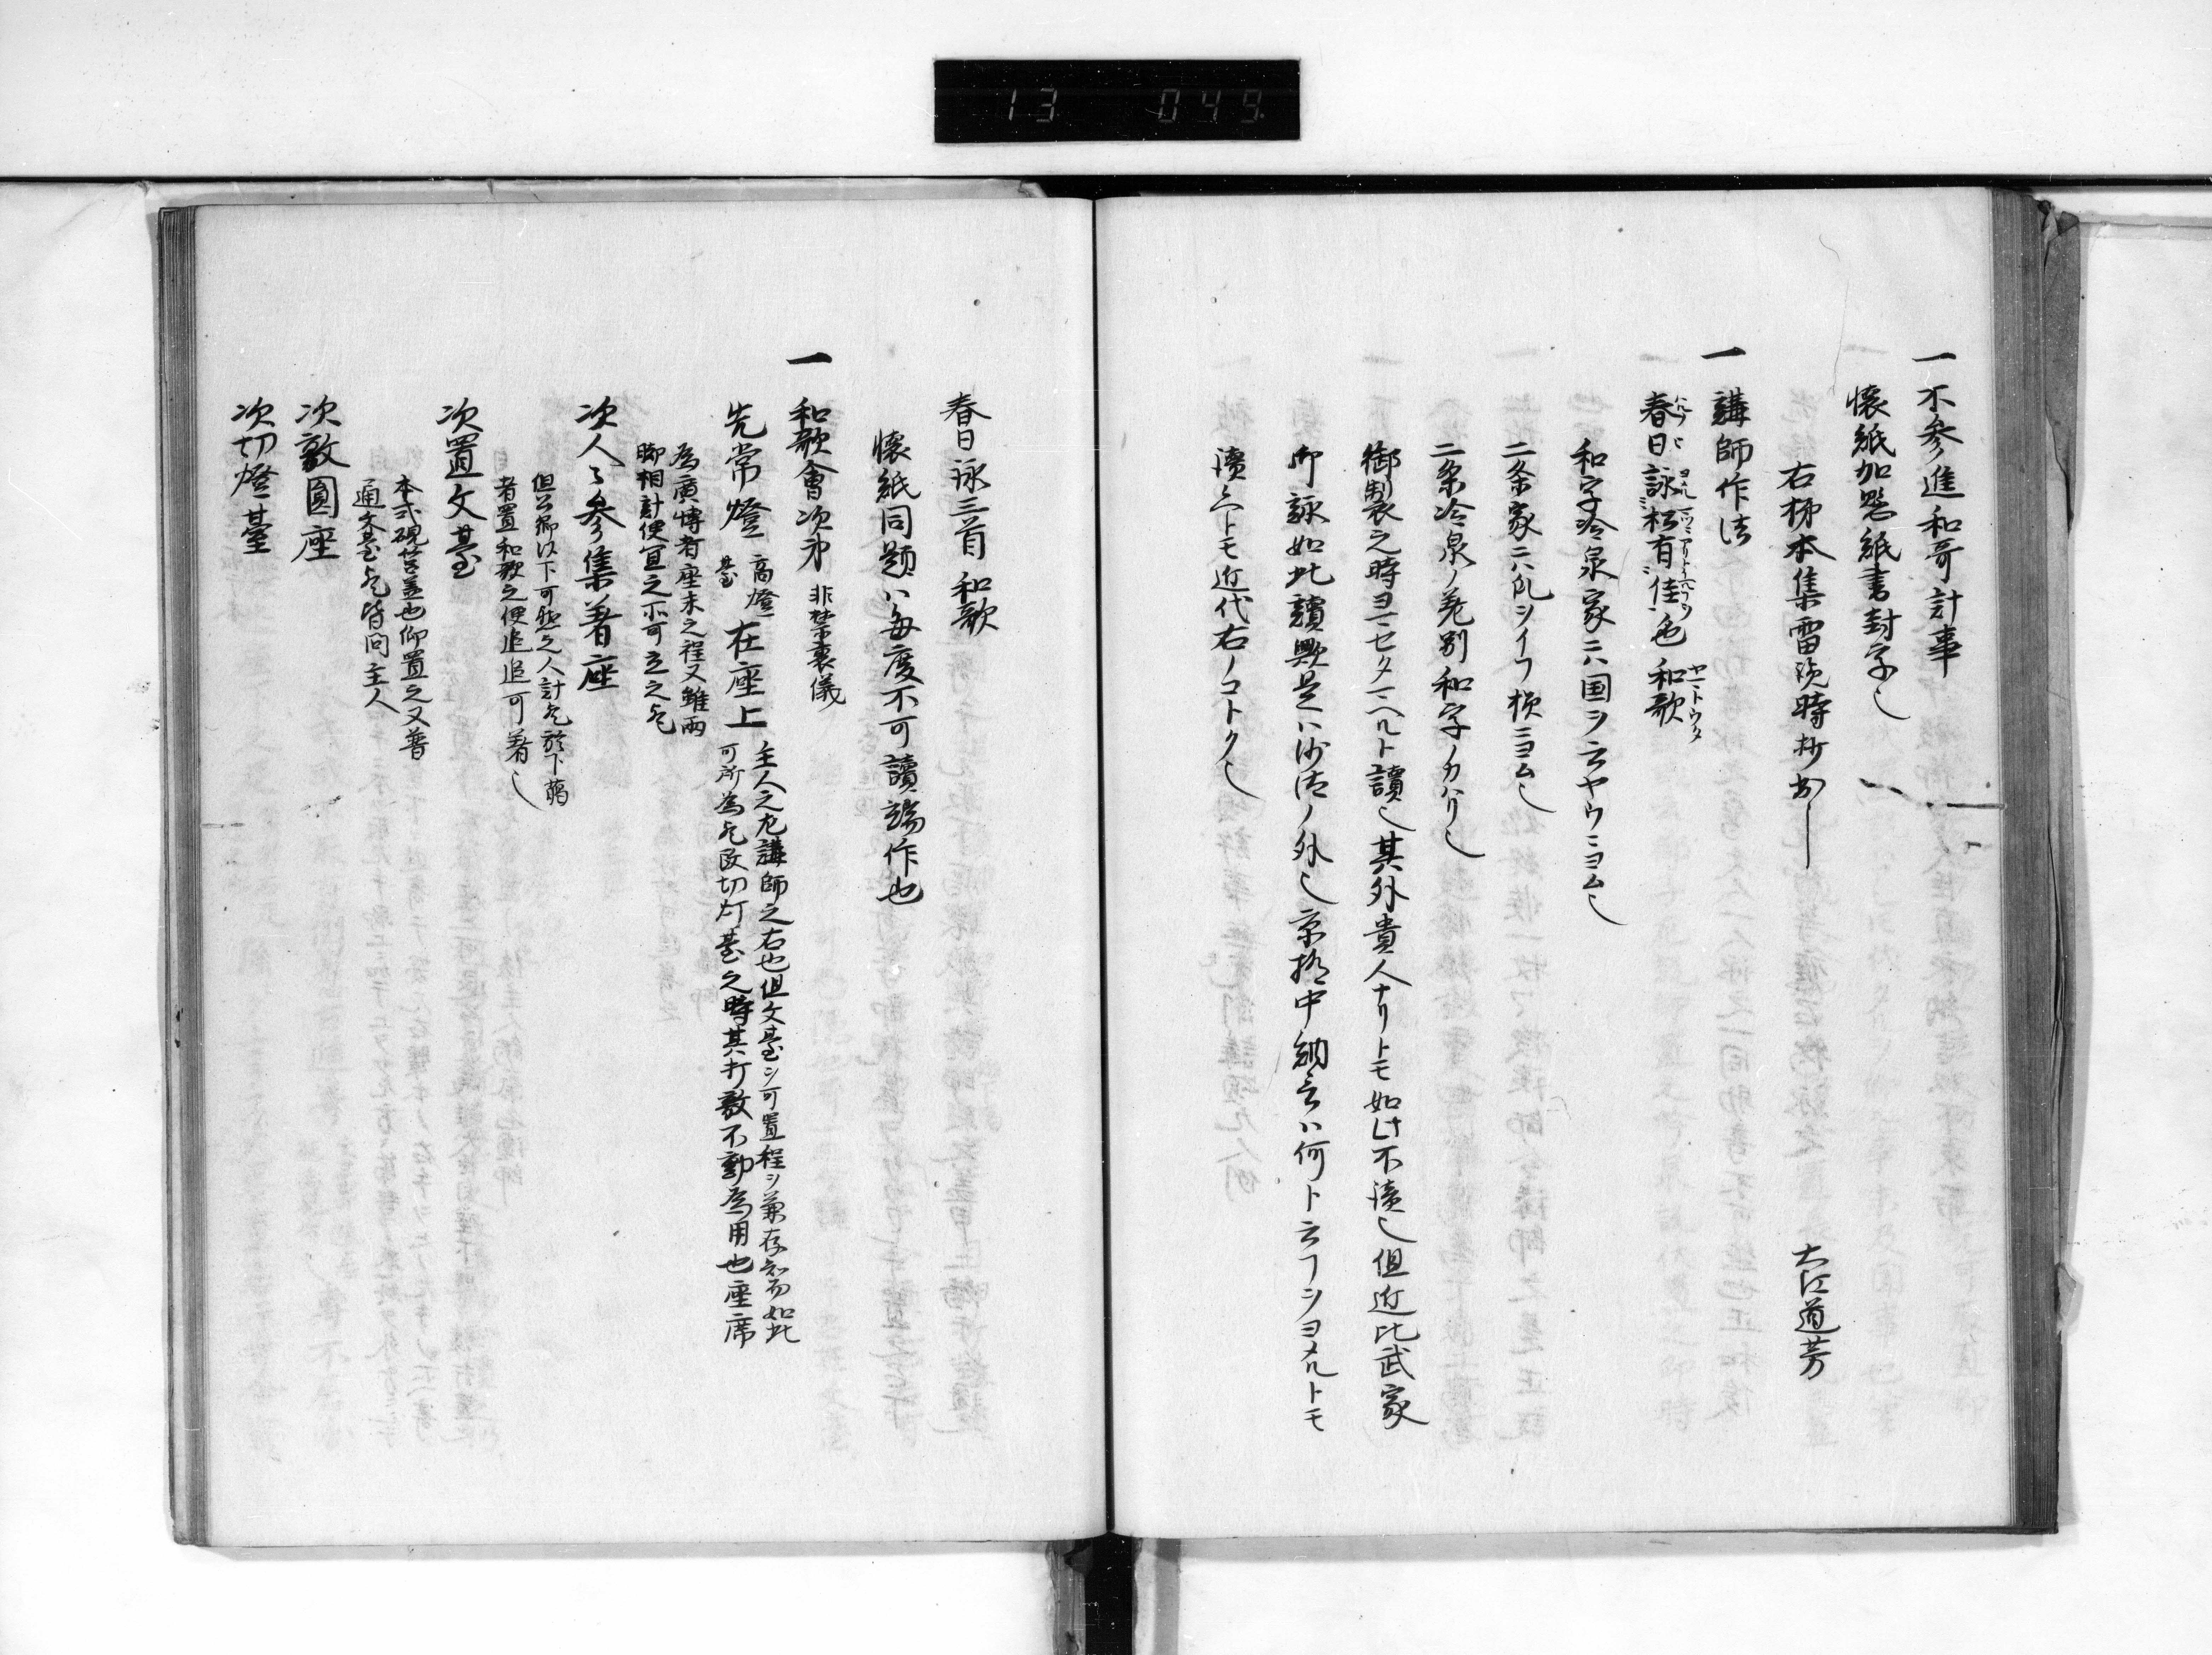 13 049
一 不参進和哥計事
懐紙加懸紙書封字也
右柿本集雷以時抄出 大江道芳
一 講師作法
春日詠松有佳色和歌
和字冷泉家ニハ国ヲ云ヤウニヨムヘシ
二条家ニハ乱シイフ様ニヨム也
二条冷泉ノ差別和字ノカハリ也
御製之時ヨマセタマヘルト讀也其外貴人ナリトモ如此不讀也但近比武家
御詠如此讀歟是ハ沙法ノ外也京極中納言ハ何ト云フヲヨメルトモ
讀ヘトモ近代右ノコトク也
春日詠三首和歌
懐紙同題ハ毎度不可讀端作也
一 和歌會次第 非禁裏儀
先常燈 高燈臺 在座上 主人之左講師之右也但文臺ヲ可置程ヲ兼存知而如此
可所為也改切灯臺之時其打敷不動為用也座席
為廣博者座末之程又雖両
脚相計便宜之所可立之也
次人々参集着座
但公卿以下可然之人計也於下﨟
者置和歌之便追追可着也
次置文臺
本式硯筥蓋也仰置之又普
通文臺也皆問主人
次敷圓座
次切燈臺